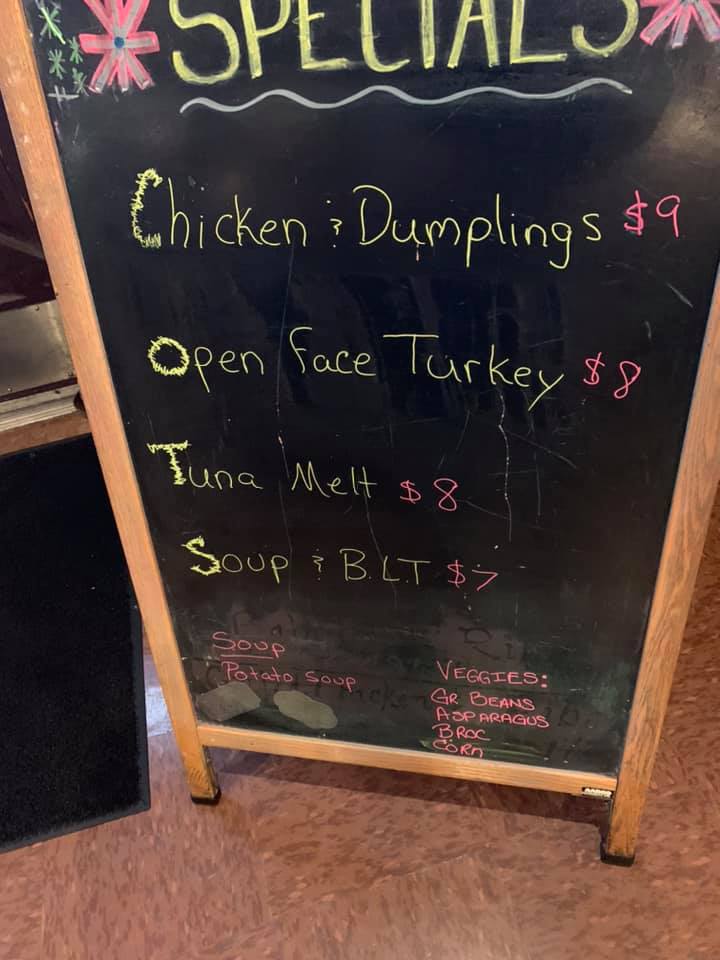 SPECIALS
Chicken & Dumplings $9
Open Face Turkey $8
Tuna Melt $8
Soup & B.L.T $7
Soup
Potato Soup
VEGGIES:
GR BEANS
ASPARAGUS
BROC
CORN